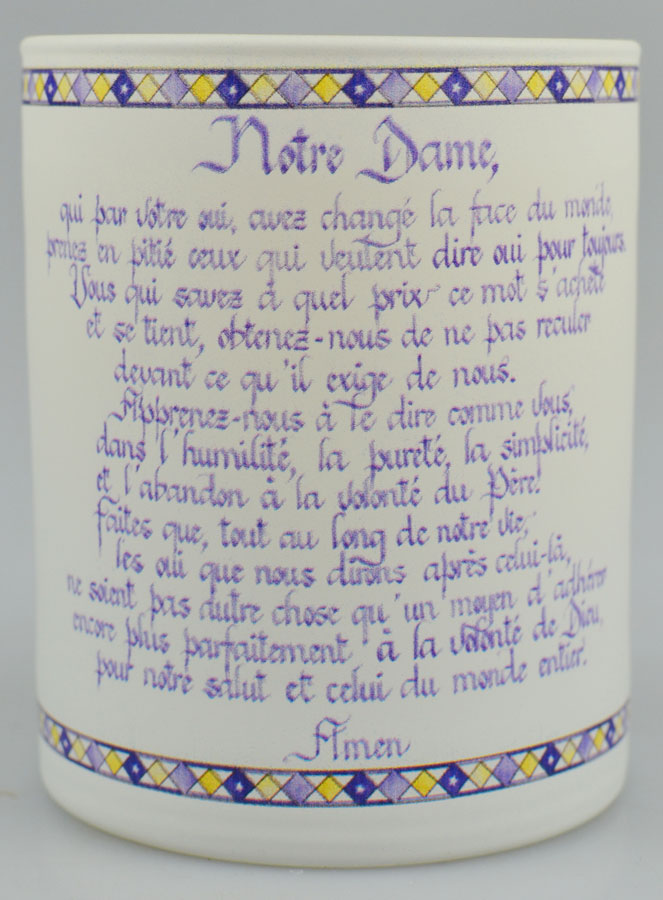 Notre Dame,
qui par votre oui, avez changé la face du monde,
prenez en pitié ceux qui veulent dire oui pour toujours.
Vous qui savez à quel prix ce mot s'achète
et se tient, obtenez-nous de ne pas reculer
devant ce qu'il exige de nous.
Apprenez-nous à le dire comme Vous,
dans l'humilité, la pureté, la simplicité,
et l'abandon à la volonté du Père.
faites que, tout au long de notre vie,
les oui que nous dirons après celui-là,
ne soient pas autre chose qu'un moyen d'adhérer
encore plus parfaitement à la volonté de Dieu,
pour notre salut et celui du monde entier.
Amen